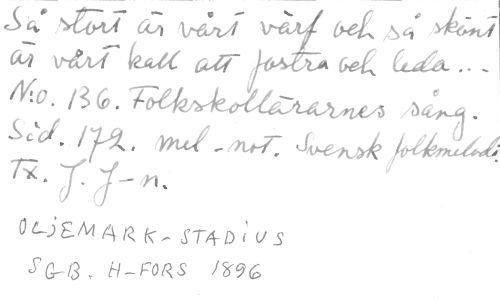 Så stort är vårt värf och så skönt
är vårt kall att fostra och leda...
N:o. 136. Folkskollärarnes sång.
Sid. 172. mel-not. Svensk folkmelodi.
Tx. J. J-n.
OLJEMARK-STADIUS
SGB. H-FORS 1896